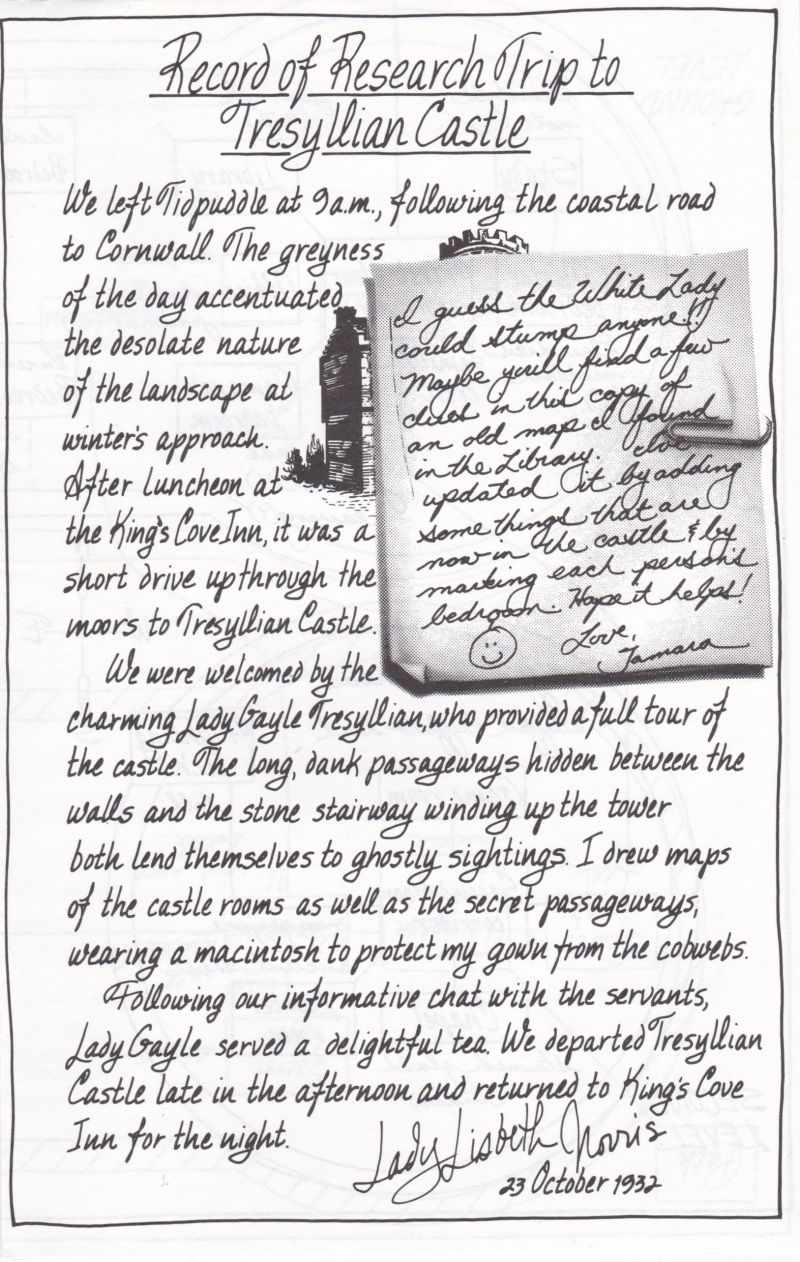 Record of Research Trip to
Tresyllian Castle
We left Tidpuddle at 9 a.m., following the coastal road
to Cornwall. The greyness
of the day accentuated
the desolate nature
of the landscape at
winter's approach.
After luncheon at
the King's Cove Inn, it was a
short drive up through the
moors to Tresyllian Castle.
I guess the White Lady
could stump anyone!!
Maybe you'll find a few
clues in this copy of
an old map I found
in the Library. I've
updated it by adding
some things that are
now in the castle & by
marking each person's
bedroom. Hope it helps!
Love,
Tamara
We were welcomed by the
charming Lady Gayle Tresyllian, who provided a full tour of
the castle. The long, dank passageways hidden between the
walls and the stone stairway winding up the tower
both lend themselves to ghostly sightings. I drew maps
of the castle rooms as well as the secret passageways,
wearing a macintosh to protect my gown from the cobwebs.
Following our informative chat with the servants,
Lady Gayle served a delightful tea. We departed Tresyllian
Castle late in the afternoon and returned to King's Cove
Inn for the night.
Lady Lisbeth Norris
23 October 1932